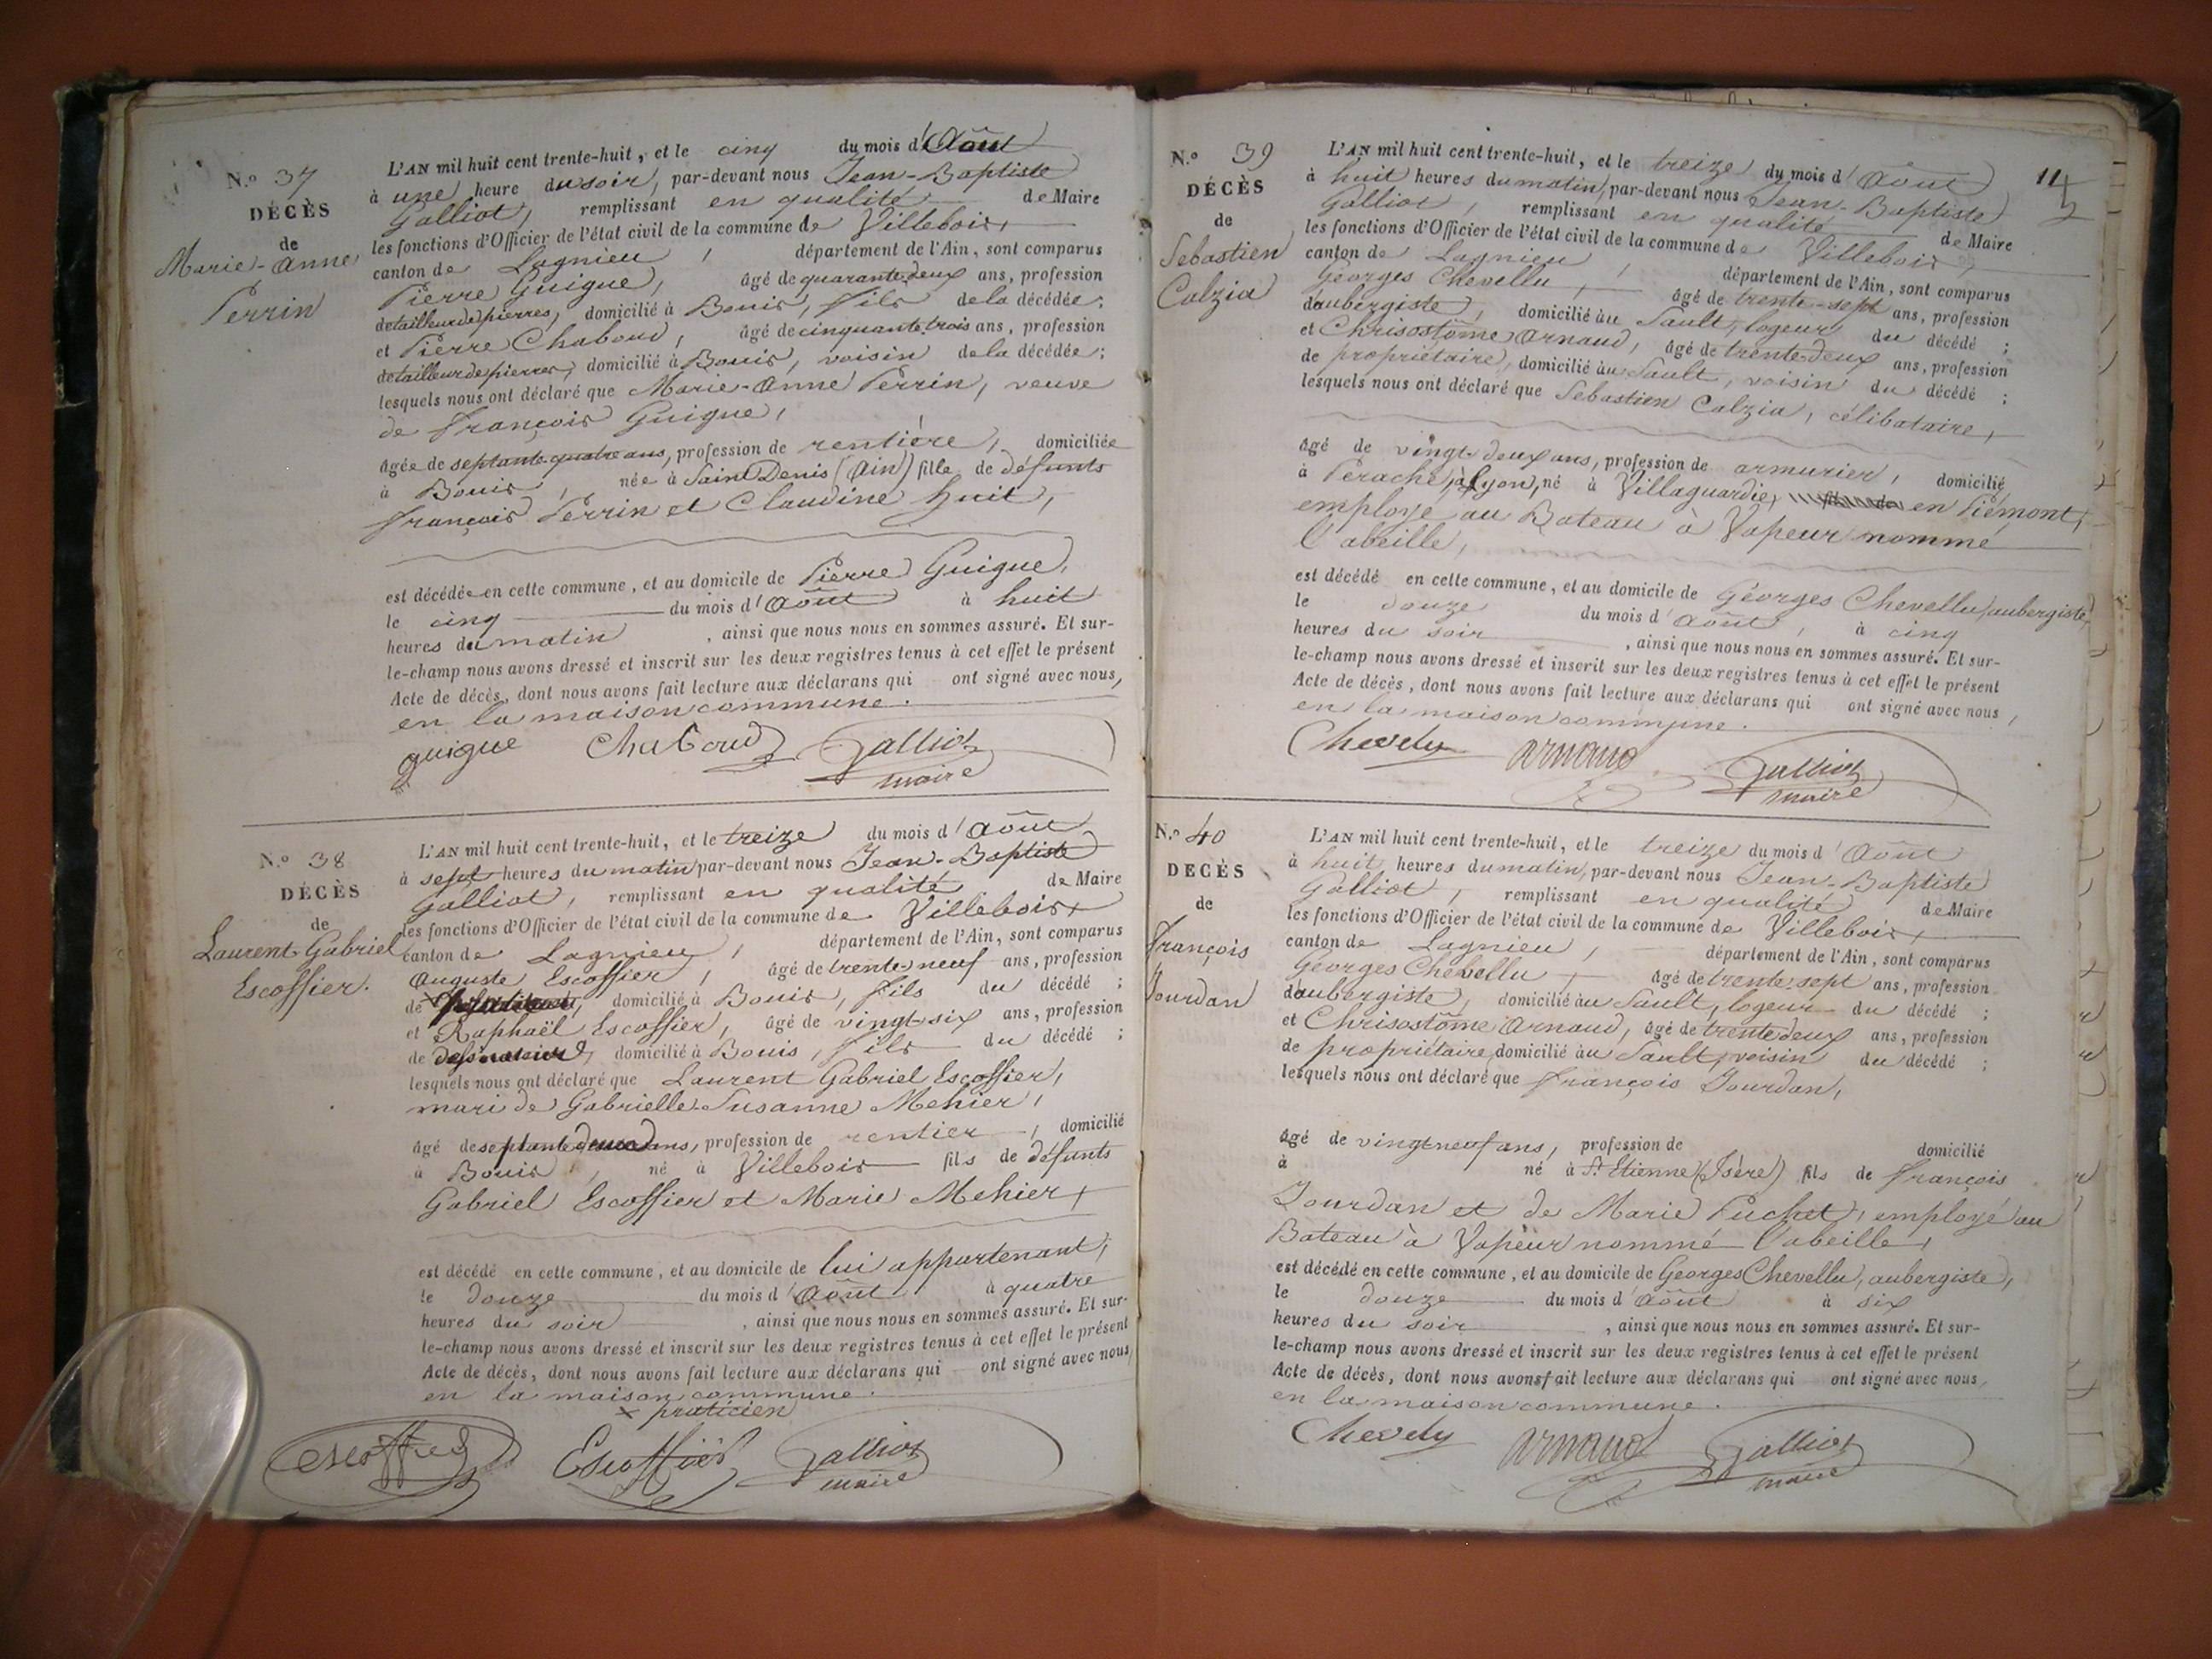 N.° 37
DÉCÈS
de
Marie-Anne
Perrin
L'AN mil huit cent trente-huit, et le cinq du mois d'Août
à une heure du soir, par-devant nous Jean-Baptiste
Galliot, remplissant en qualité de Maire
les fonctions d'Officier de l'état civil de la commune de Villebois,
canton de Lagnieu, département de l'Ain, sont comparus
Pierre Guigue, âgé de quarante-deux ans, profession
de tailleur de pierres, domicilié à Bouis, fils de la décédée;
et Pierre Chaboud, âgé de cinquante trois ans, profession
de tailleur de pierres, domicilié à Bouis, voisin de la décédée;
lesquels nous ont déclaré que Marie-Anne Perrin, veuve
de François Guigue,
âgée de septante-quatre ans, profession de rentière, domiciliée
à Bouis, née à Saint Denis (Ain) fille de défunts
François Perrin et Claudine huit,
est décédée en cette commune, et au domicile de Pierre Guigue,
le cinq du mois d'Août à huit
heures du matin, ainsi que nous nous en sommes assuré. Et sur-
le-champ nous avons dressé et inscrit sur les deux registres tenus à cet effet le présent
Acte de décès, dont nous avons fait lecture aux déclarans qui ont signé avec nous,
en la maison commune.
guigue Chaboud Galliot
maire
N.° 38
DÉCÈS
de
Laurent-Gabriel
Escoffier.
L'AN mil huit cent trente-huit, et le treize du mois d'Août
à sept heures du matin par-devant nous Jean-Baptiste
Galliot, remplissant en qualité de Maire
les fonctions d'Officier de l'état civil de la commune de Villebois,
canton de Lagnieu, département de l'Ain, sont comparus
Auguste Escoffier, âgé de trente-neuf ans, profession
de domicilié à Bouis, fils du décédé;
et Raphaël Escoffier, âgé de vingt-six ans, profession
de dessinateur, domicilié à Bouis, fils du décédé;
lesquels nous ont déclaré que Laurent Gabriel Escoffier,
mari de Gabrielle-Susanne Mehier,
âgé de septante ans, profession de rentier, domicilié
à Bouis, né à Villebois fils de défunts
Gabriel Escoffier et Marie Mehier,
est décédé en cette commune, et au domicile de lui appartenant,
le douze du mois d'Août à quatre
heures du soir, ainsi que nous nous en sommes assuré. Et sur-
le-champ nous avons dressé et inscrit sur les deux registres tenus à cet effet le présent
Acte de décès, dont nous avons fait lecture aux déclarans qui ont signé avec nous,
en la maison commune.
x praticien
Escoffier Escoffier Galliot
maire
N.° 39
DÉCÈS
de
Sebastien
Calzia
L'AN mil huit cent trente-huit, et le treize du mois d'Août
à huit heures du matin, par-devant nous Jean-Baptiste
Galliot, remplissant en qualité de Maire
les fonctions d'Officier de l'état civil de la commune de Villebois,
canton de Lagnieu, département de l'Ain, sont comparus
Georges Chevellu, âgé de trente-sept ans, profession
d'aubergiste, domicilié au Sault, logeur du décédé;
et Chrisostôme Arnaud, âgé de trente-deux ans, profession
de propriétaire, domicilié au Sault, voisin du décédé;
lesquels nous ont déclaré que Sebastien Calzia, célibataire,
âgé de vingt-deux ans, profession de armurier, domicilié
à Perache, à Lyon, né à Villaguardie, en Piémont,
employe au Bateau à Vapeur nommé
l'abeille,
est décédé en cette commune, et au domicile de Géorges Chevellu, aubergiste,
le douze du mois d'Août, à cinq
heures du soir, ainsi que nous nous en sommes assuré. Et sur-
le-champ nous avons dressé et inscrit sur les deux registres tenus à cet effet le présent
Acte de décès, dont nous avons fait lecture aux déclarans qui ont signé avec nous,
en la maison commune.
Chevely Arnaud Galliot
maire
N.° 40
DÉCÈS
de
François
Jourdan
L'AN mil huit cent trente-huit, et le treize du mois d'Août
à huit heures du matin, par-devant nous Jean-Baptiste
Galliot, remplissant en qualité de Maire
les fonctions d'Officier de l'état civil de la commune de Villebois,
canton de Lagnieu, département de l'Ain, sont comparus
Georges Chevellu, âgé de trente-sept ans, profession
d'aubergiste, domicilié au Sault, logeur du décédé;
et Chrisostôme Arnaud, âgé de trente deux ans, profession
de propriétaire, domicilié au Sault, voisin du décédé;
lesquels nous ont déclaré que François Jourdan,
âgé de vingt neuf ans, profession de domicilié
à né à St. Etienne (Isère) fils de François
Jourdan et de Marie Puchet, employé au
Bateau à Vapeur nommé l'abeille,
est décédé en cette commune, et au domicile de Georges Chevellu, aubergiste,
le douze du mois d'Août à six
heures du soir, ainsi que nous nous en sommes assuré. Et sur-
le-champ nous avons dressé et inscrit sur les deux registres tenus à cet effet le présent
Acte de décès, dont nous avons fait lecture aux déclarans qui ont signé avec nous,
en la maison commune.
Chevely Arnaud Galliot
maire